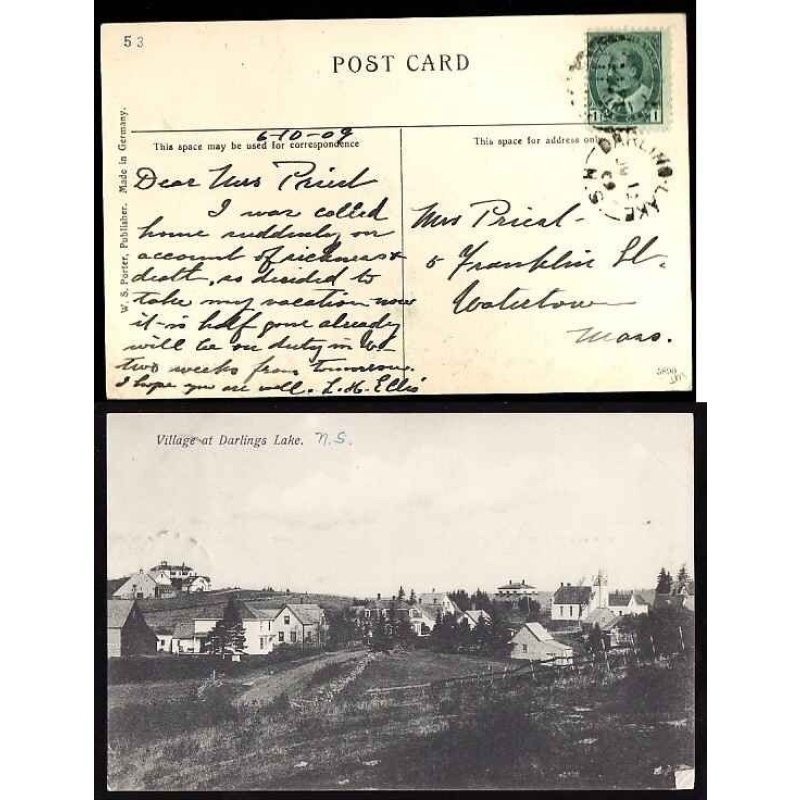 53
POST CARD
1 1
6-10-09
This space may be used for correspondence
This space for address only
DARLING LAKE
N.S.
JN 10
09
W. S. Porter, Publisher. Made in Germany.
Dear Mrs Priest
I was called
home suddenly on
account of sickness &
death, so decided to
take my vacation now
it is half gone already
will be on duty in
two weeks from tomorrow.
I hope you are well. L. H. Ellis
Mrs Priest-
5 Franklin St.
Watertown
Mass.
Village at Darlings Lake. N.S.